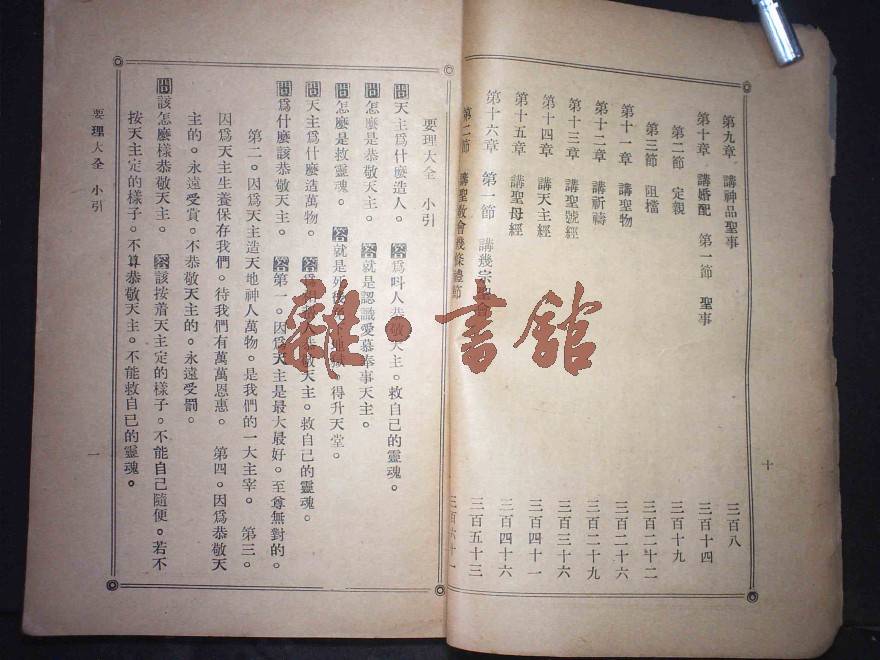 第九章 講神品聖事 三百八
第十章 講婚配 第一節 聖事 三百十四
第二節 定親 三百十九
第三節 阻擋 三百二十二
第十一章 講聖物 三百二十六
第十二章 講祈禱 三百二十九
第十三章 講聖號經 三百三十六
第十四章 講天主經 三百四十一
第十五章 講聖母經 三百四十六
第十六章 第一節 講幾宗聖會 三百五十三
第二節 講聖教會幾條禮節 三百六十一
十
要理大全 小引
問天主爲什麼造人。 答爲叫人恭敬天主。救自己的靈魂。
問怎麼是恭敬天主。 答就是認識愛慕奉事天主。
問怎麼是救靈魂。 答就是死後 地獄。得升天堂。
問天主爲什麼造萬物。 答爲 人恭敬天主。救自己的靈魂。
問爲什麼該恭敬天主。 答第一。因爲天主是最大最好。至尊無對的。
第二。因爲天主造天地神人萬物。是我們的一大主宰。 第三。
因爲天主生養保存我們。待我們有萬萬恩惠。 第四。因爲恭敬天
主的。永遠受賞。不恭敬天主的。永遠受罰。
問該怎麼樣恭敬天主。 答該按着天主定的樣子。不能自己隨便。若不
按天主定的樣子。不算恭敬天主。不能救自己的靈魂。
要理大全 小引 一
雜·書館